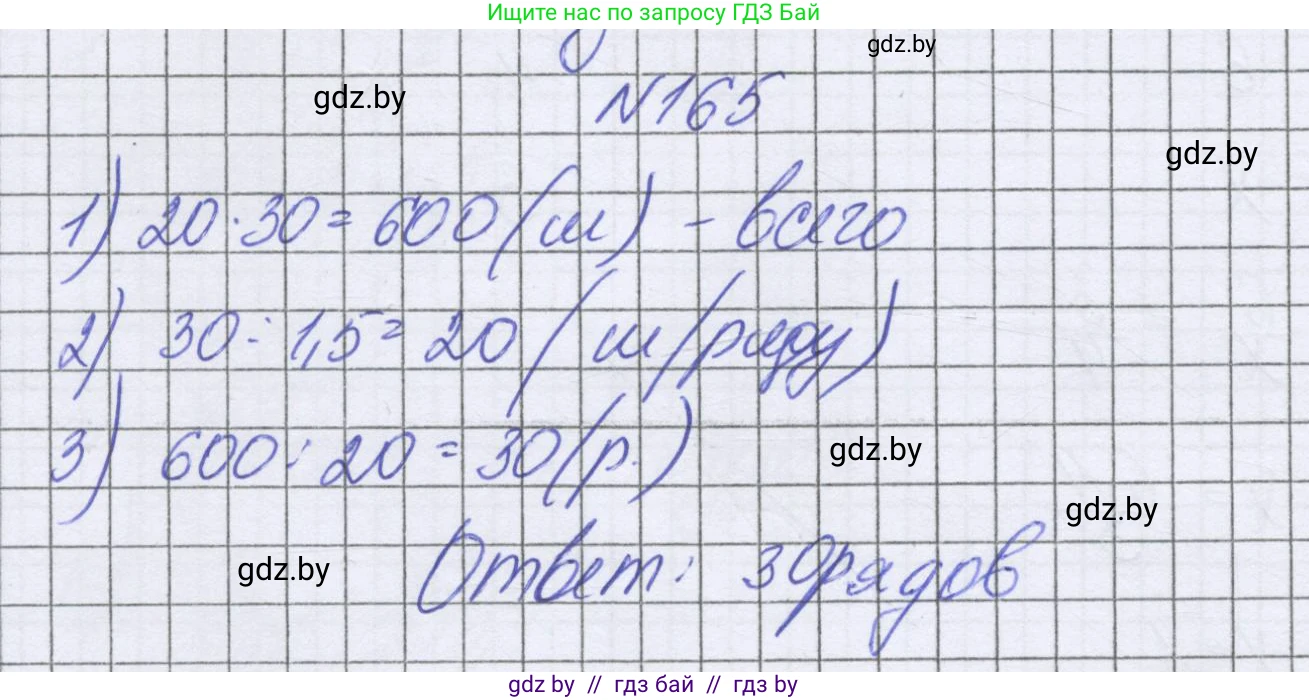 Ищите нас по запросу ГДЗ Бай
gdz.by
gdz.by
№165
gdz.by
1) 20·30=600 (ш) - всего
2) 30:1,5=20 (ш/ряду)
3) 600:20=30 (р.)
gdz.by
gdz.by
gdz.by
Ответ: 30 рядов
gdz.by // гдз бай // гдз by